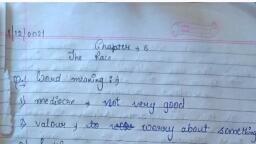 Chapter → 6
The Race
Q.1 Word meaning :→
1) mediocre → Not very good
2) valour → to worry about something